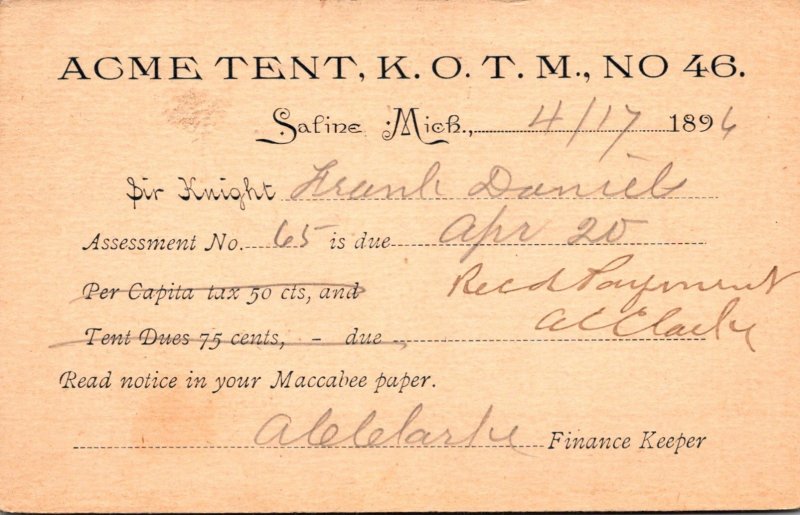 ACME TENT, K. O. T. M., NO 46.
Saline Mich., 4/17 1896
Sir Knight Frank Daniels
Assessment No. 65 is due Apr 20
Per Capita tax 50 cts, and
Recd Payment
Tent Dues 75 cents, - due
A C Clarke
Read notice in your Maccabee paper.
A C Clarke Finance Keeper